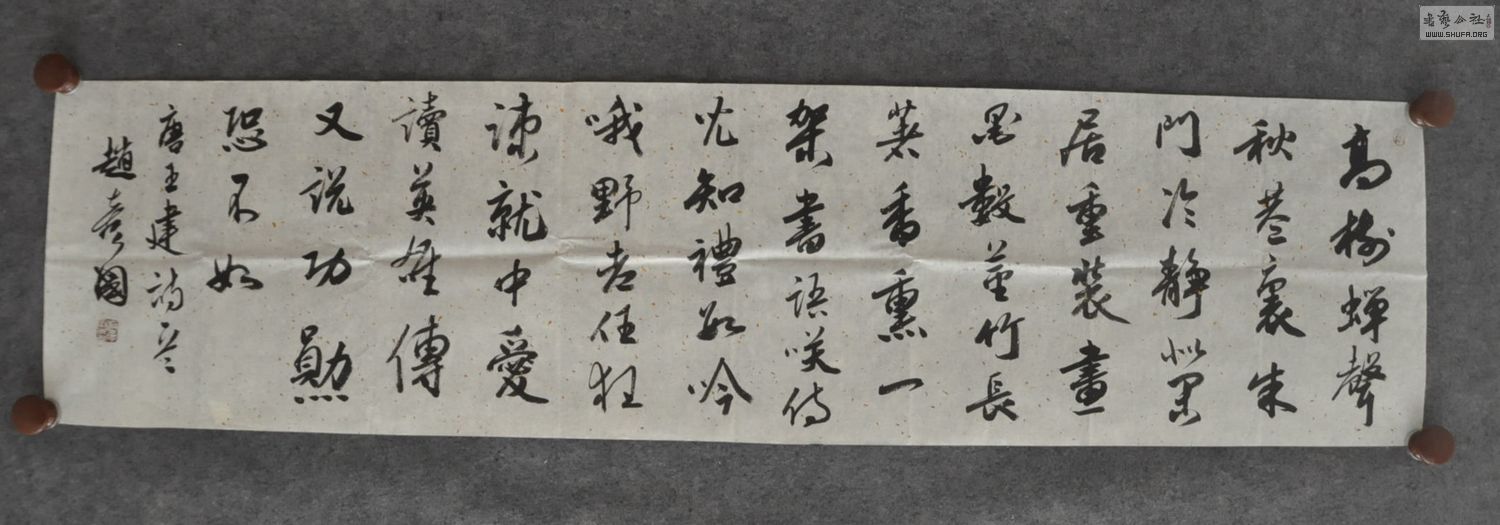 高樹蟬聲
秋巷裏朱
門冷靜似閑
居重裝畫
墨數莖竹長
著香熏一
架書語笑侍
兒知禮數吟
哦野客任狂
疎就中愛
讀英雄傳
又說功勳
恐不如
唐王建詩一首
趙國
書藝公社
WWW.SHUFA.ORG